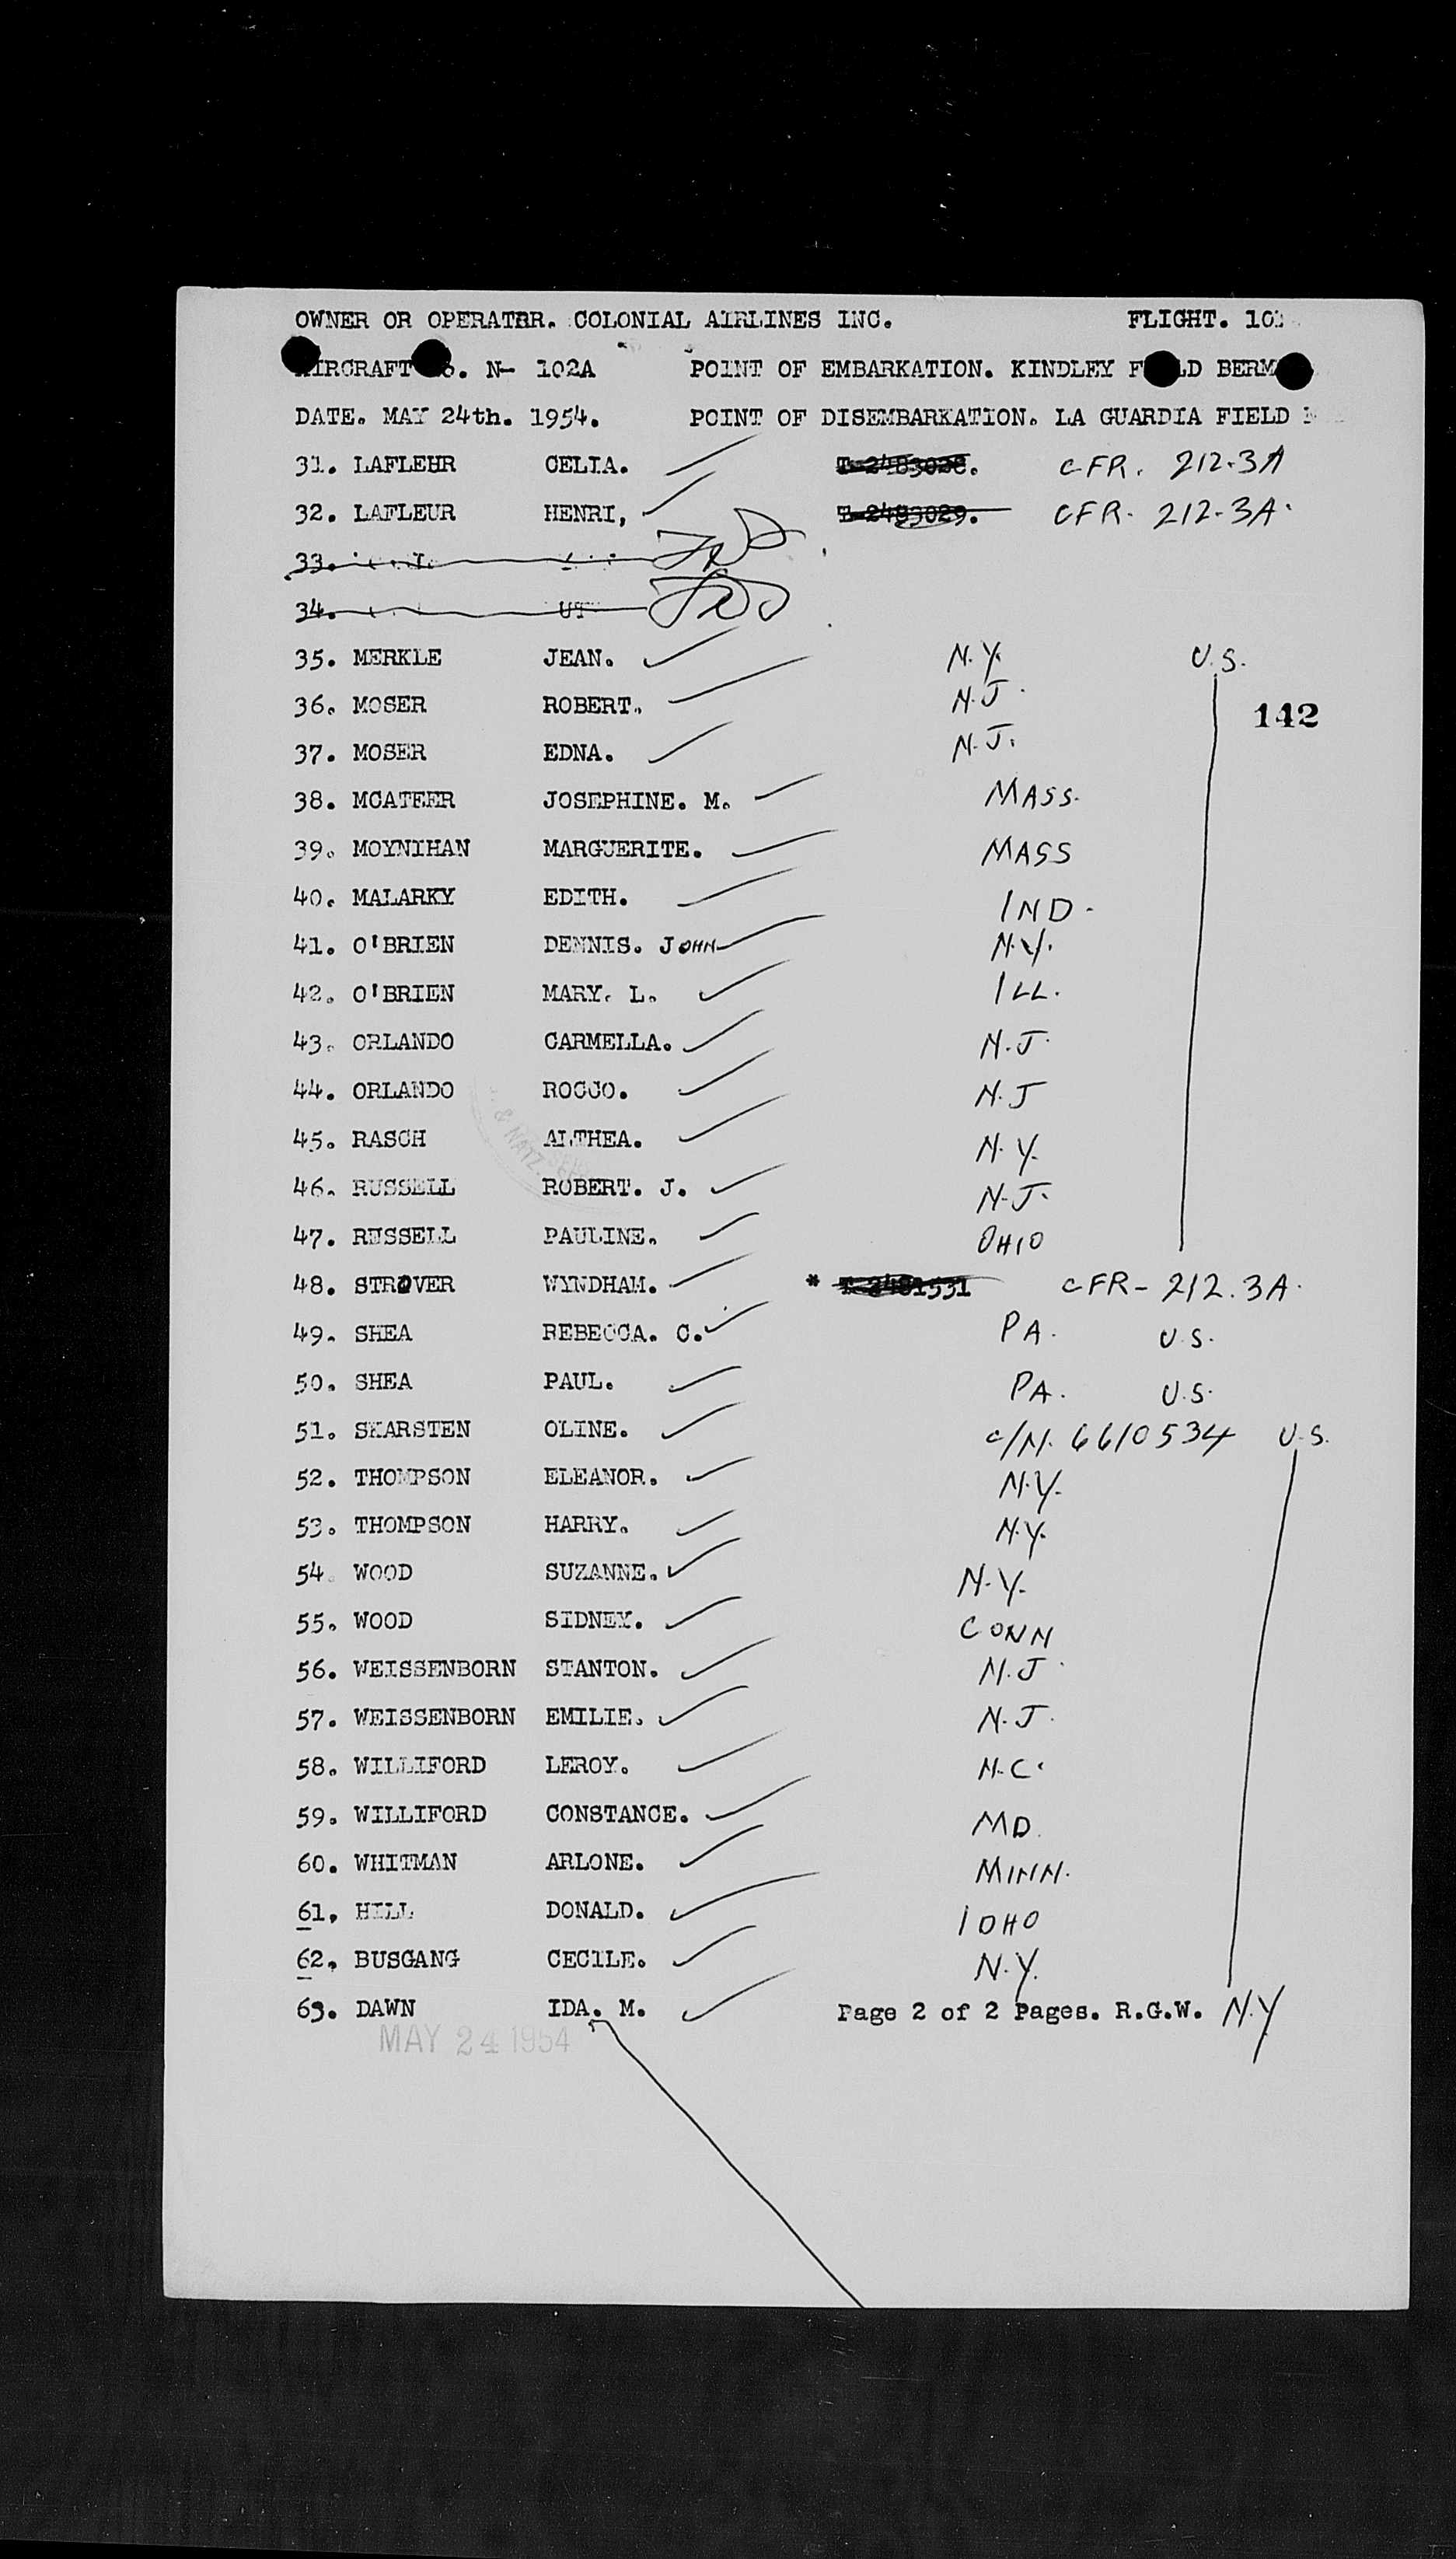 OWNER OR OPERATER. COLONIAL AIRLINES INC. FLIGHT. 102
AIRCRAFT NO. N- 102A POINT OF EMBARKATION. KINDLEY FIELD BERM
DATE. MAY 24th. 1954. POINT OF DISEMBARKATION. LA GUARDIA FIELD
31. LAFLEUR CELIA. T-2483028. CFR. 212-3A
32. LAFLEUR HENRI, T-2483029. CFR- 212-3A.
33.
34.
35. MERKLE JEAN. N.Y. U.S.
36. MOSER ROBERT. N.J.
142
37. MOSER EDNA. N.J.
38. MCATEER JOSEPHINE. M. MASS.
39. MOYNIHAN MARGUERITE. MASS
40. MALARKY EDITH. IND.
41. O'BRIEN DENNIS. JOHN N.Y.
42. O'BRIEN MARY. L. ILL.
43. ORLANDO CARMELLA. N.J.
44. ORLANDO ROCCO. N.J
45. RASCH ALTHEA. N.Y.
& NATZ.
46. RUSSELL ROBERT. J. N.J.
47. RUSSELL PAULINE. OHIO
48. STROVER WYNDHAM. * T-2481531 CFR- 212.3A.
49. SHEA REBECCA. C. PA. U.S.
50. SHEA PAUL. PA. U.S.
51. SKARSTEN OLINE. C/N. 6610534 U.S.
52. THOMPSON ELEANOR. N.Y.
53. THOMPSON HARRY. N.Y.
54. WOOD SUZANNE. N.Y.
55. WOOD SIDNEY. CONN
56. WEISSENBORN STANTON. N.J.
57. WEISSENBORN EMILIE. N.J.
58. WILLIFORD LEROY. N.C.
59. WILLIFORD CONSTANCE. MD.
60. WHITMAN ARLONE. MINN.
61. HILL DONALD. IDHO
62. BUSGANG CECILE. N.Y.
63. DAWN IDA. M. Page 2 of 2 Pages. R.G.W. N.Y
MAY 24 1954